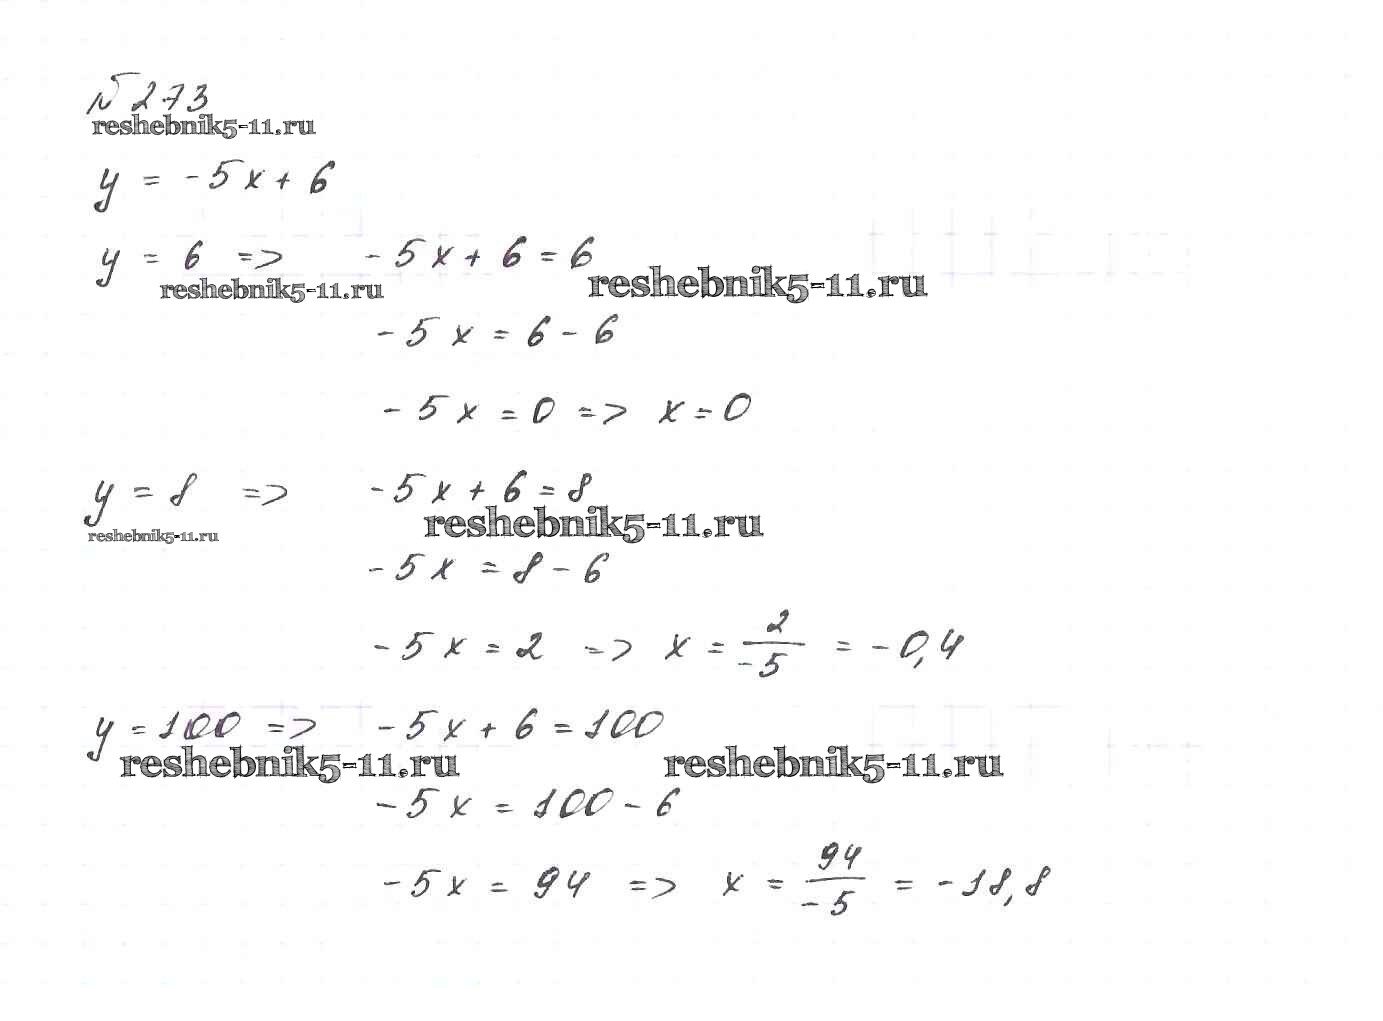 № 273
reshebnik5-11.ru
y = -5x + 6
y = 6 => -5x + 6 = 6
reshebnik5-11.ru reshebnik5-11.ru
-5x = 6 - 6
-5x = 0 => x = 0
y = 8 => -5x + 6 = 8
reshebnik5-11.ru reshebnik5-11.ru
-5x = 8 - 6
-5x = 2 => x = 2/-5 = -0,4
y = 100 => -5x + 6 = 100
reshebnik5-11.ru reshebnik5-11.ru
-5x = 100 - 6
-5x = 94 => x = 94/-5 = -18,8